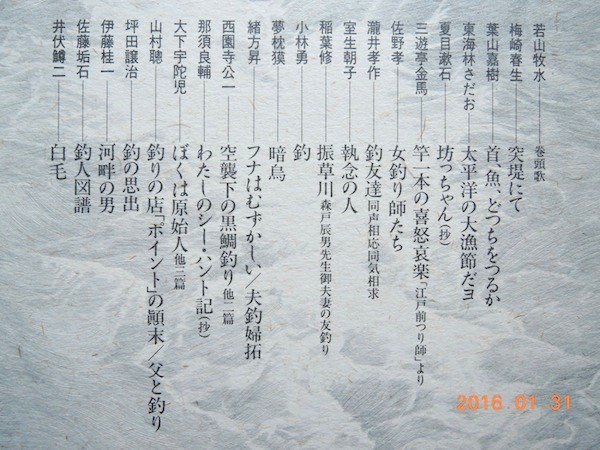 若山牧水 巻頭歌
梅崎春生 突堤にて
葉山嘉樹 首、魚、どつちをつるか
東海林さだお 太平洋の大漁節だヨ
夏目漱石 坊っちゃん(抄)
三遊亭金馬 竿一本の喜怒哀楽「江戸前つり師」より
佐野孝 女釣り師たち
瀧井孝作 釣友達 同声相応同気相求
室生朝子 執念の人
稲葉修 振草川 森戸辰男先生御夫妻の友釣り
小林勇 釣
夢枕獏 暗鳥
緒方昇 フナはむずかしい/夫釣婦拓
西園寺公一 空襲下の黒鯛釣り 他二篇
那須良輔 わたしのシー・ハント記(抄)
大下宇陀児 ぼくは原始人 他三篇
山村聰 釣りの店「ポイント」の顚末/父と釣り
坪田譲治 釣の思出
伊藤桂一 河畔の男
佐藤垢石 釣人図譜
井伏鱒二 白毛
2016.01.31